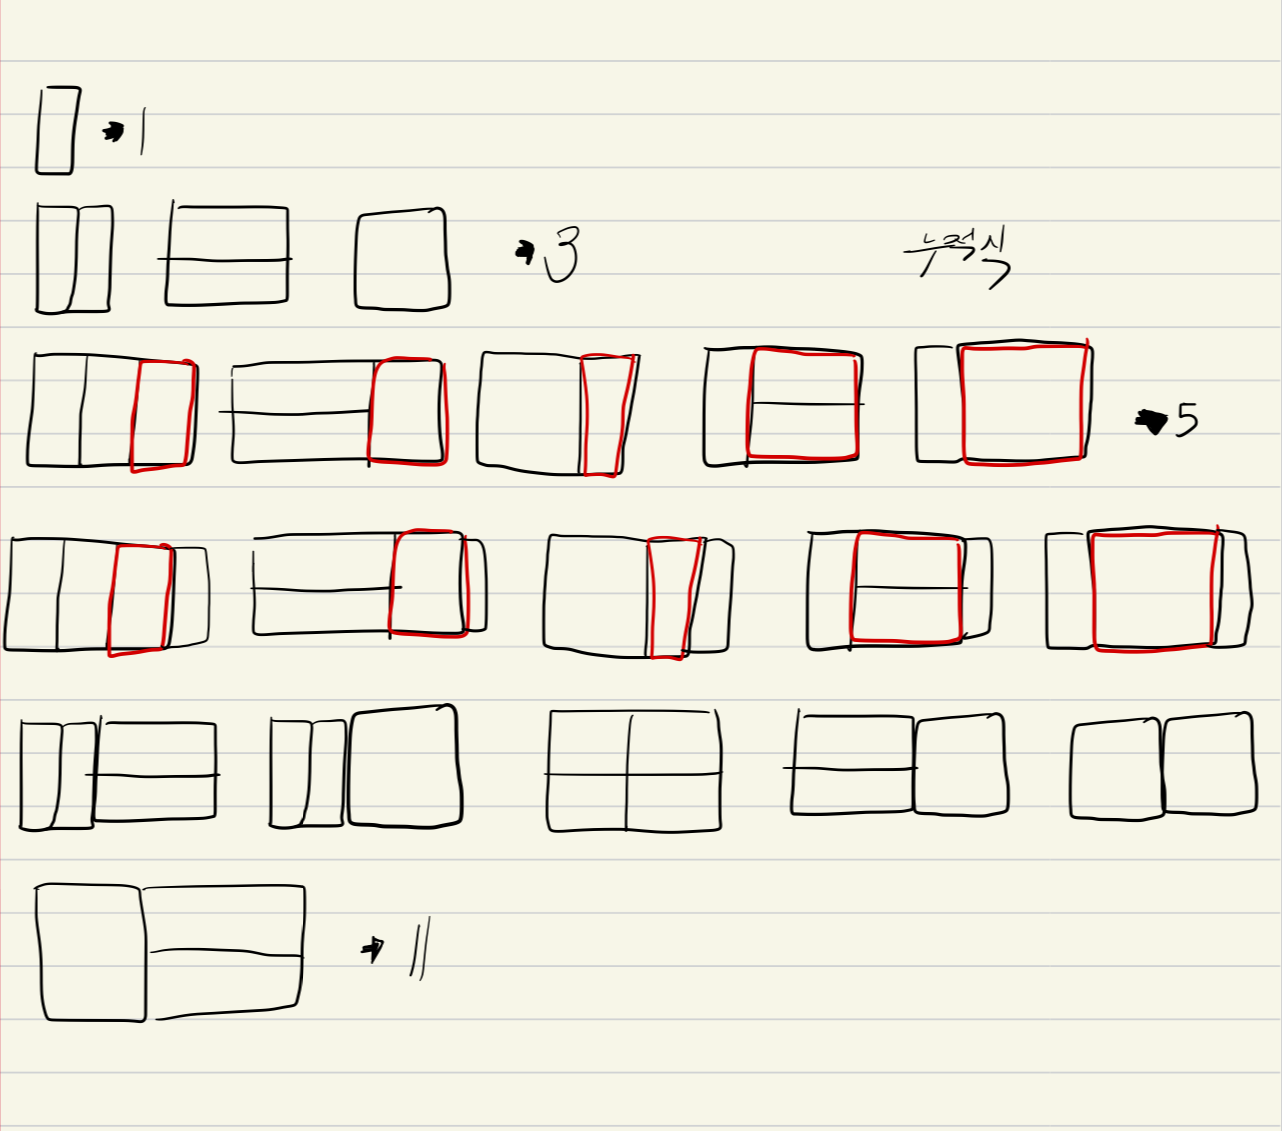 ➡ 1
➡ 3
누적식
➡ 5
➡ 11